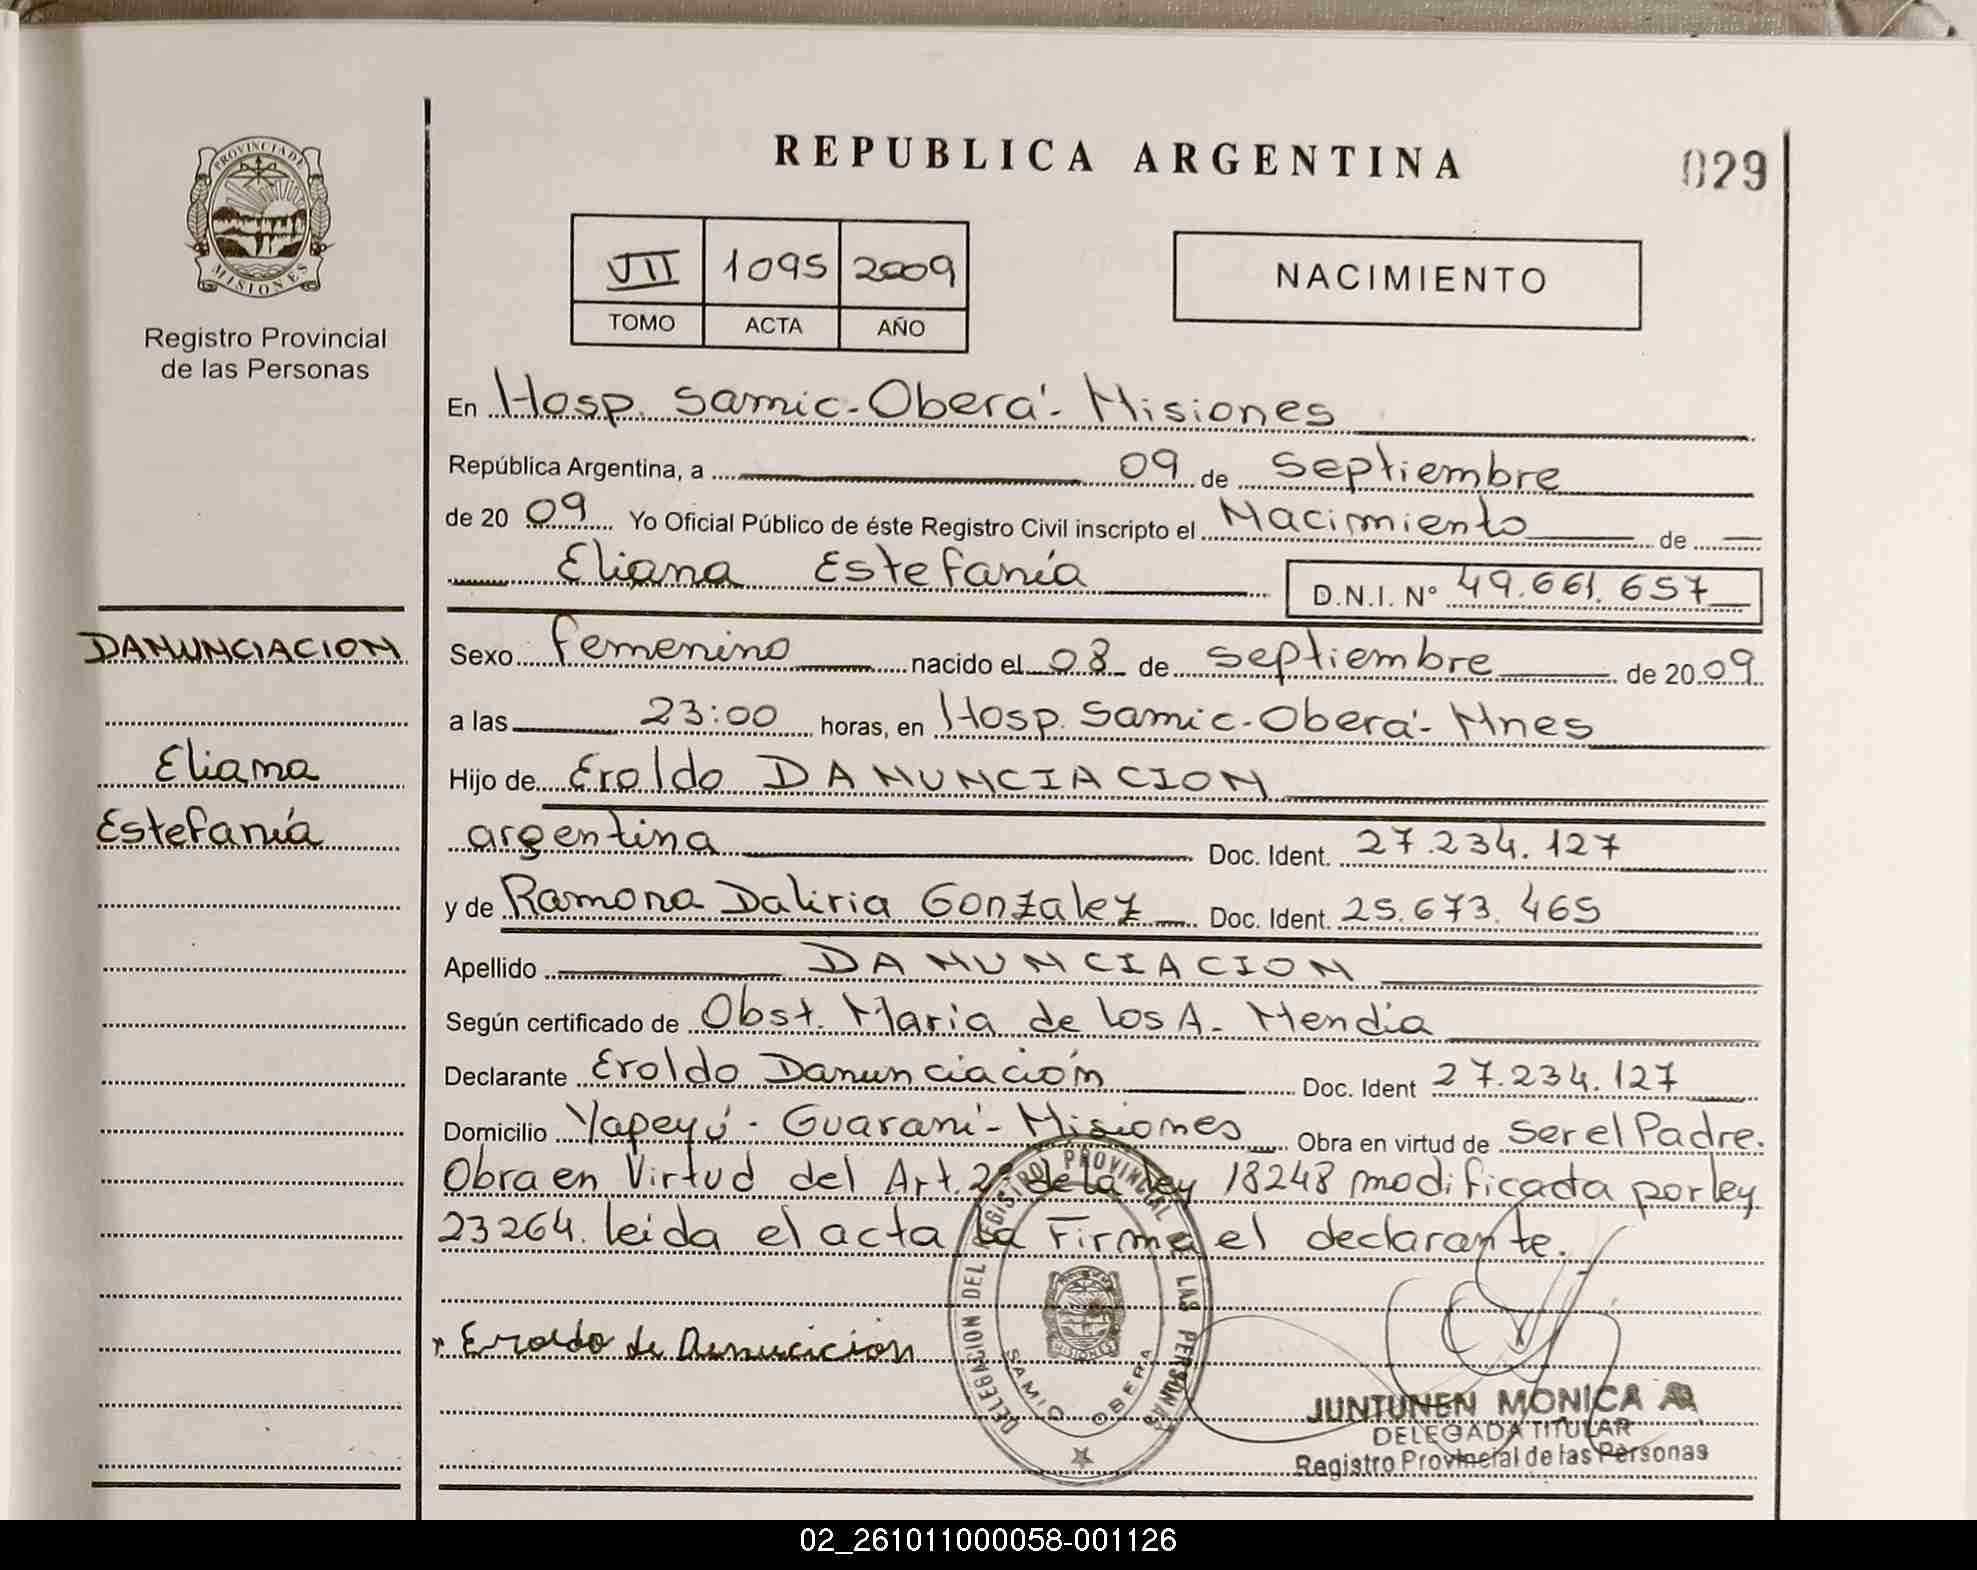 PROVINCIA DE
MISIONES
Registro Provincial
de las Personas
DANUNCIACION
Eliana
Estefanía
REPUBLICA ARGENTINA
029
VII 1095 2009
TOMO ACTA AÑO
NACIMIENTO
En Hosp. Samic - Oberá - Misiones
República Argentina, a 09 de Septiembre
de 20 09 Yo Oficial Público de éste Registro Civil inscripto el Nacimiento de
Eliana Estefanía D.N.I. N° 49.661.657
Sexo Femenino nacido el 08 de Septiembre de 20 09
a las 23:00 horas, en Hosp. Samic - Oberá - Mnes
Hijo de Eroldo DANUNCIACION
argentina Doc. Ident. 27.234.127
y de Ramona Daliria Gonzalez Doc. Ident. 25.673.465
Apellido DANUNCIACION
Según certificado de Obst. Maria de los A. Mendia
Declarante Eroldo Danunciación Doc. Ident 27.234.127
Domicilio Yapeyú - Guaraní - Misiones Obra en virtud de Ser el Padre.
Obra en Virtud del Art. 2° de la ley 18248 modificada por ley
23264. leida el acta la Firma el declarante.
Eroldo de Danucicion
DELEGACION DEL REGISTRO PROVINCIAL DE LAS PERSONAS
SAMIC OBERA
MISIONES
JUNTUNEN MONICA A
DELEGADA TITULAR
Registro Provincial de las Personas
02_261011000058-001126